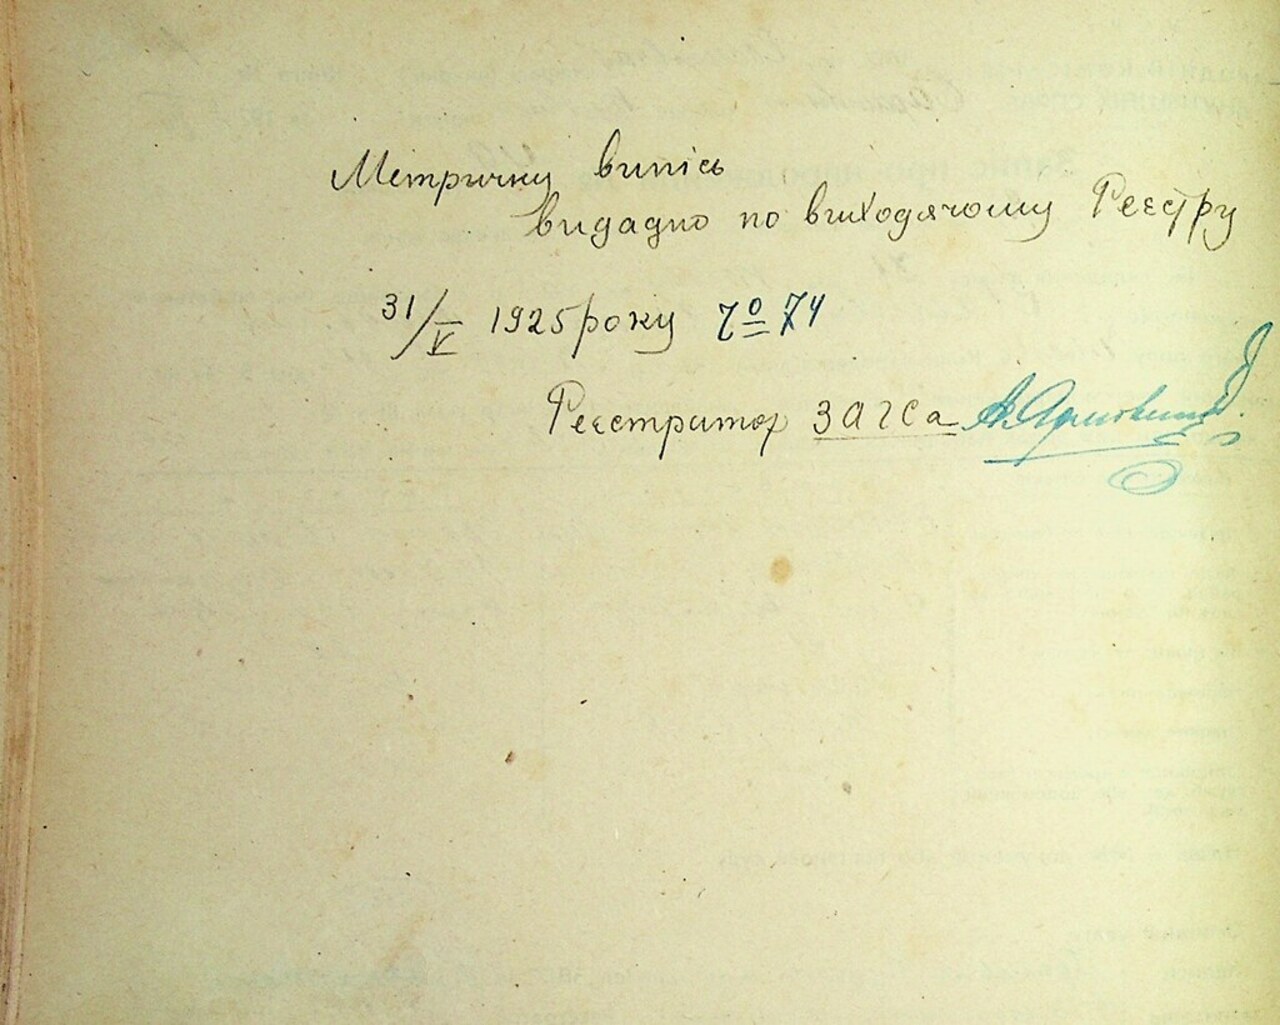 Метричну випісь
видадно по виходячому Реєстру
31/V 1925 року № 74
Реєстратор ЗАГСа